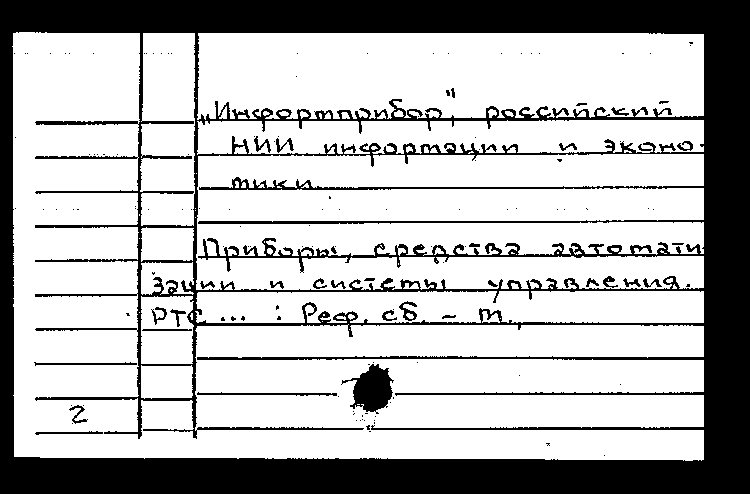 „Информприбор", российский
НИИ информации и эконо-
мики.
Приборы, средства автомати
зации и системы управления.
РТС ... : Реф. сб. – М.,
2